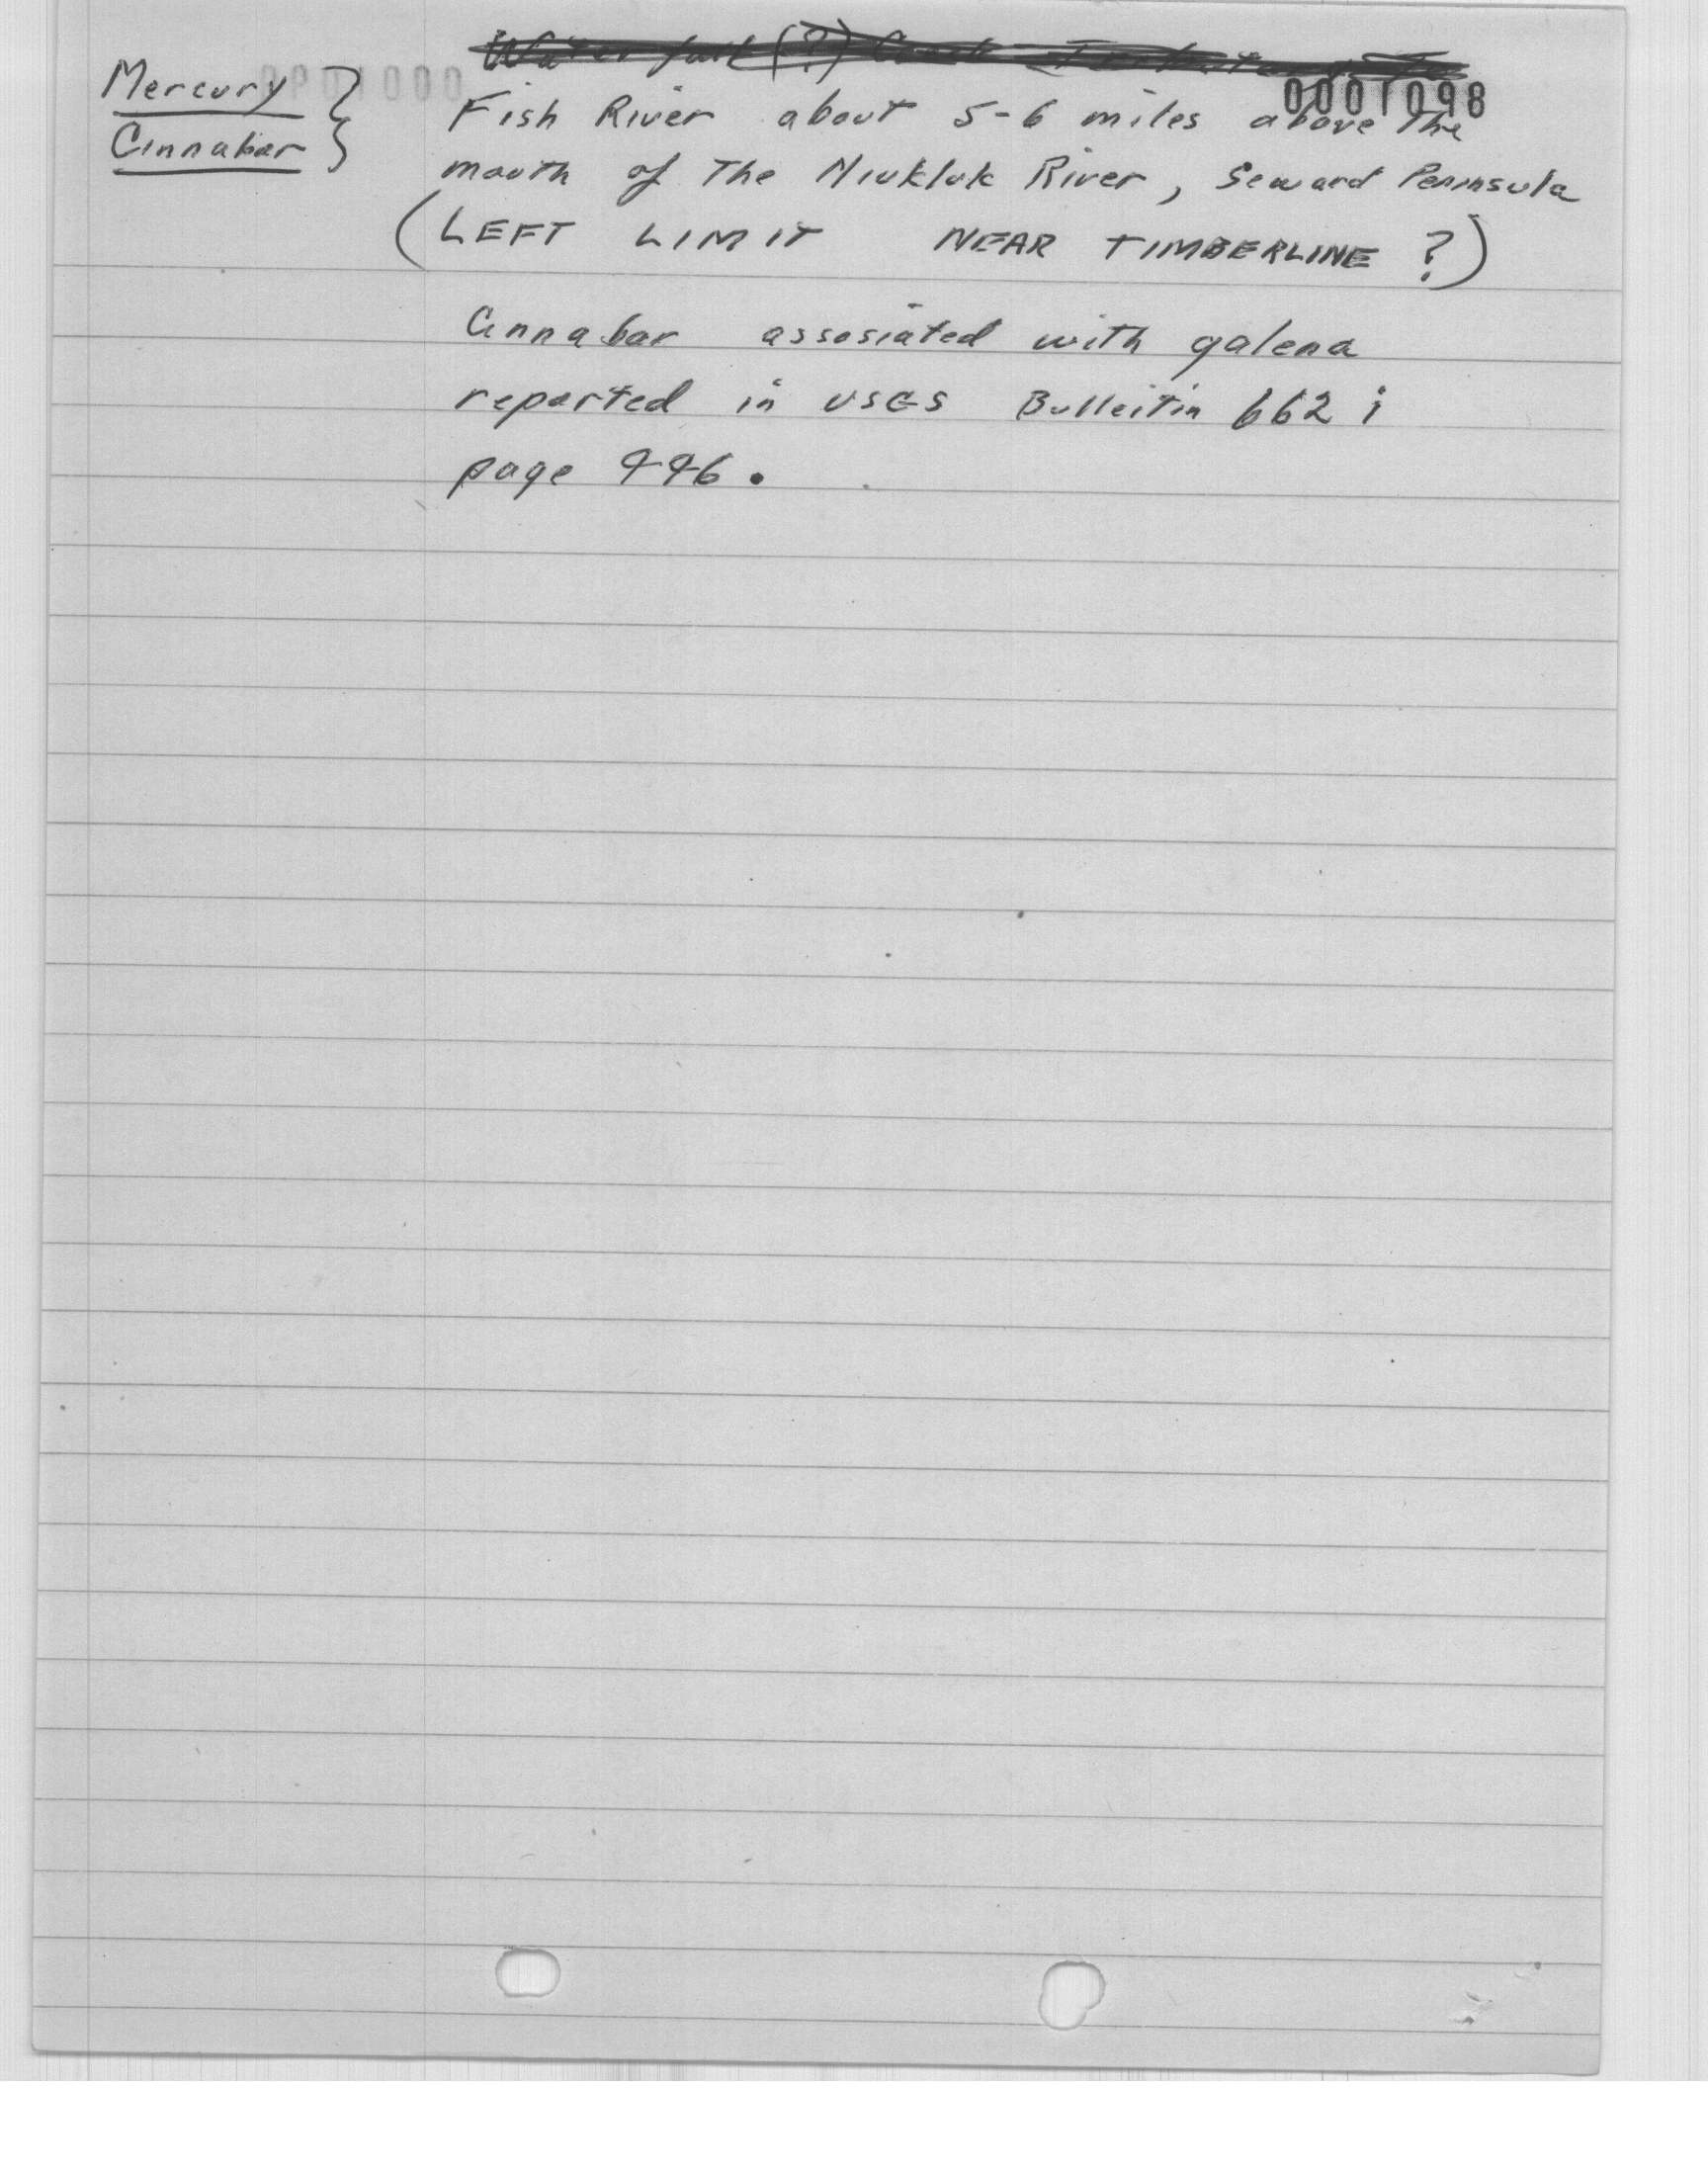 0001098
Mercury
Cinnabar
Water fall (?) Creek Tributary To
Fish River about 5-6 miles above The
mouth of The Niukluk River, Seward Peninsula
(LEFT LIMIT NEAR TIMBERLINE ?)
Cinnabar assosiated with galena
reported in USGS Bulleitin 662 i
page 446.